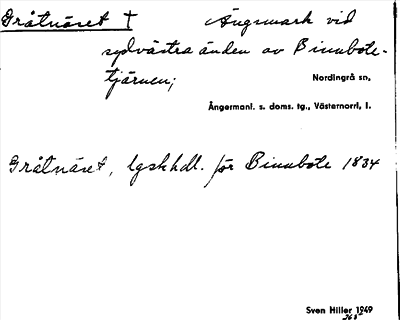 Gråtnäset † Ängsmark vid
sydvästra änden av Binnbole-
tjärnen;
Nordingrå sn,
Ångermanl. s. doms. tg., Västernorrl. l.
Gråtnäset, lgskhdl. för Binnbole 1834
Sven Hiller 1949